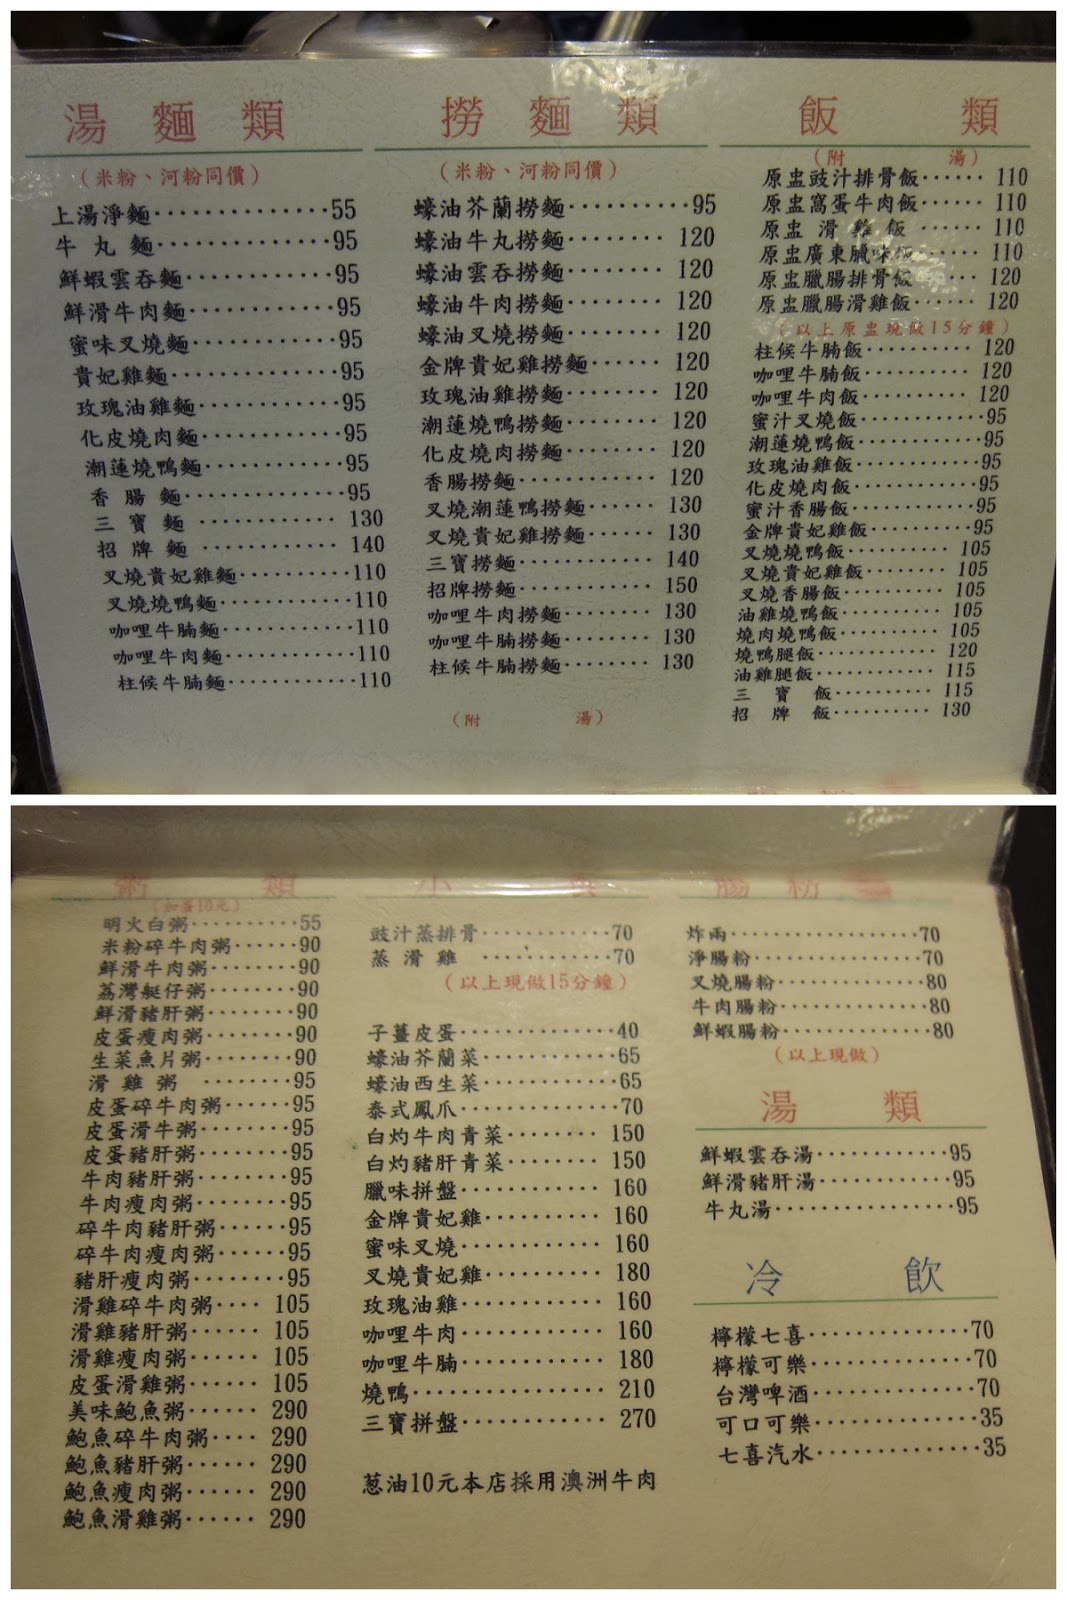 湯麵類
(米粉、河粉同價)
上湯淨麵··············55
牛丸麵··············95
鮮蝦雲吞麵············95
鮮滑牛肉麵············95
蜜味叉燒麵············95
貴妃雞麵··············95
玫瑰油雞麵············95
化皮燒肉麵············95
潮蓮燒鴨麵············95
香腸麵··············95
三寶麵············130
招牌麵············140
叉燒貴妃雞麵··········110
叉燒燒鴨麵············110
咖哩牛腩麵············110
咖哩牛肉麵············110
柱候牛腩麵············110
撈麵類
(米粉、河粉同價)
蠔油芥蘭撈麵··········95
蠔油牛丸撈麵········120
蠔油雲吞撈麵········120
蠔油牛肉撈麵········120
蠔油叉燒撈麵········120
金牌貴妃雞撈麵······120
玫瑰油雞撈麵········120
潮蓮燒鴨撈麵········120
化皮燒肉撈麵········120
香腸撈麵············120
叉燒潮蓮鴨撈麵······130
叉燒貴妃雞撈麵······130
三寶撈麵············140
招牌撈麵············150
咖哩牛肉撈麵········130
咖哩牛腩撈麵········130
柱候牛腩撈麵········130
(附湯)
飯類
(附湯)
原盅豉汁排骨飯······110
原盅窩蛋牛肉飯······110
原盅滑雞飯······110
原盅廣東臘味飯······110
原盅臘腸排骨飯······120
原盅臘腸滑雞飯······120
(以上原盅現做15分鐘)
柱候牛腩飯··········120
咖哩牛腩飯··········120
咖哩牛肉飯··········120
蜜汁叉燒飯············95
潮蓮燒鴨飯············95
玫瑰油雞飯············95
化皮燒肉飯············95
蜜汁香腸飯············95
金牌貴妃雞飯··········95
叉燒燒鴨飯··········105
叉燒貴妃雞飯········105
叉燒香腸飯··········105
油雞燒鴨飯··········105
燒肉燒鴨飯··········105
燒鴨腿飯············120
油雞腿飯············115
三寶飯··········115
招牌飯··········130
粥類
(加蛋10元)
明火白粥··········55
米粉碎牛肉粥······90
鮮滑牛肉粥········90
荔灣艇仔粥········90
鮮滑豬肝粥········90
皮蛋瘦肉粥········90
生菜魚片粥········90
滑雞粥········95
皮蛋碎牛肉粥······95
皮蛋滑牛粥········95
皮蛋豬肝粥········95
牛肉豬肝粥········95
牛肉瘦肉粥········95
碎牛肉豬肝粥······95
碎牛肉瘦肉粥······95
豬肝瘦肉粥········95
滑雞碎牛肉粥····105
滑雞豬肝粥······105
滑雞瘦肉粥······105
皮蛋滑雞粥······105
美味鮑魚粥······290
鮑魚碎牛肉粥····290
鮑魚豬肝粥······290
鮑魚瘦肉粥······290
鮑魚滑雞粥······290
小
豉汁蒸排骨···········70
蒸滑雞···········70
(以上現做15分鐘)
子薑皮蛋·············40
蠔油芥蘭菜···········65
蠔油西生菜···········65
泰式鳳爪·············70
白灼牛肉青菜········150
白灼豬肝青菜········150
臘味拼盤············160
金牌貴妃雞··········160
蜜味叉燒············160
叉燒貴妃雞··········180
玫瑰油雞············160
咖哩牛肉············160
咖哩牛腩············180
燒鴨················210
三寶拼盤············270
葱油10元本店採用澳洲牛肉
腸粉
炸兩················70
淨腸粉··············70
叉燒腸粉············80
牛肉腸粉············80
鮮蝦腸粉············80
(以上現做)
湯類
鮮蝦雲吞湯···········95
鮮滑豬肝湯···········95
牛丸湯···············95
冷飲
檸檬七喜·············70
檸檬可樂·············70
台灣啤酒·············70
可口可樂·············35
七喜汽水·············35